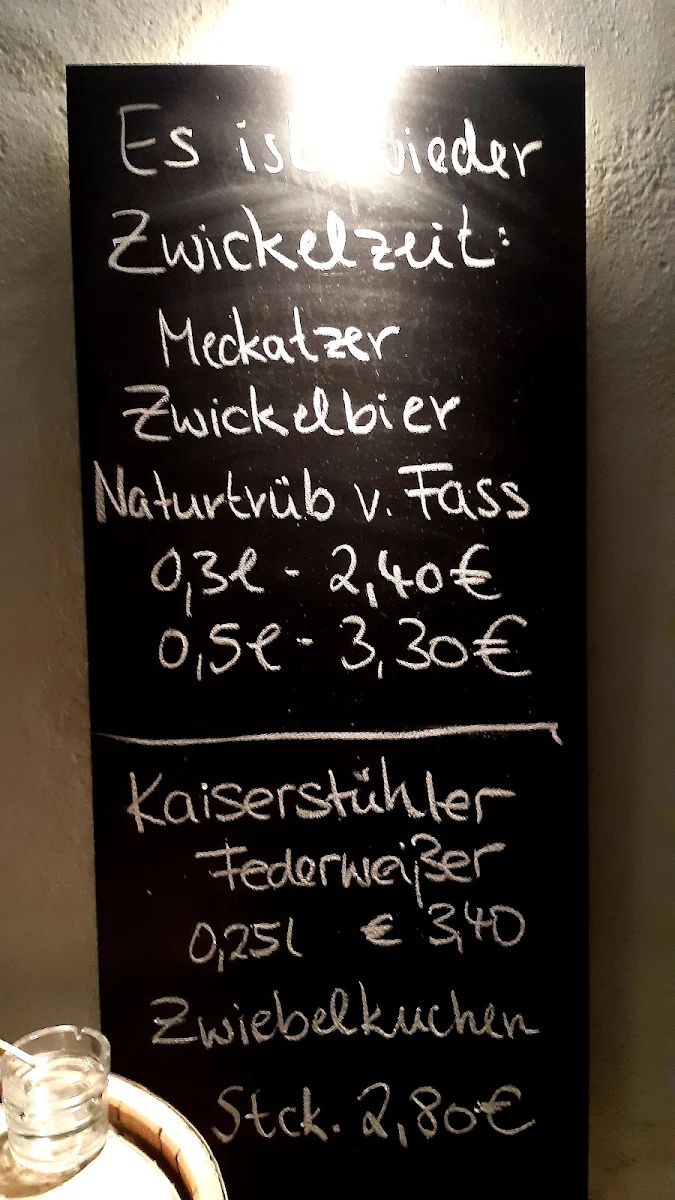 Es ist wieder
Zwickelzeit:
Meckatzer
Zwickelbier
Naturtrüb v. Fass
0,3l - 2,40€
0,5l - 3,30€
Kaiserstühler
Federweißer
0,25l € 3,40
Zwiebelkuchen
Stck. 2,80€